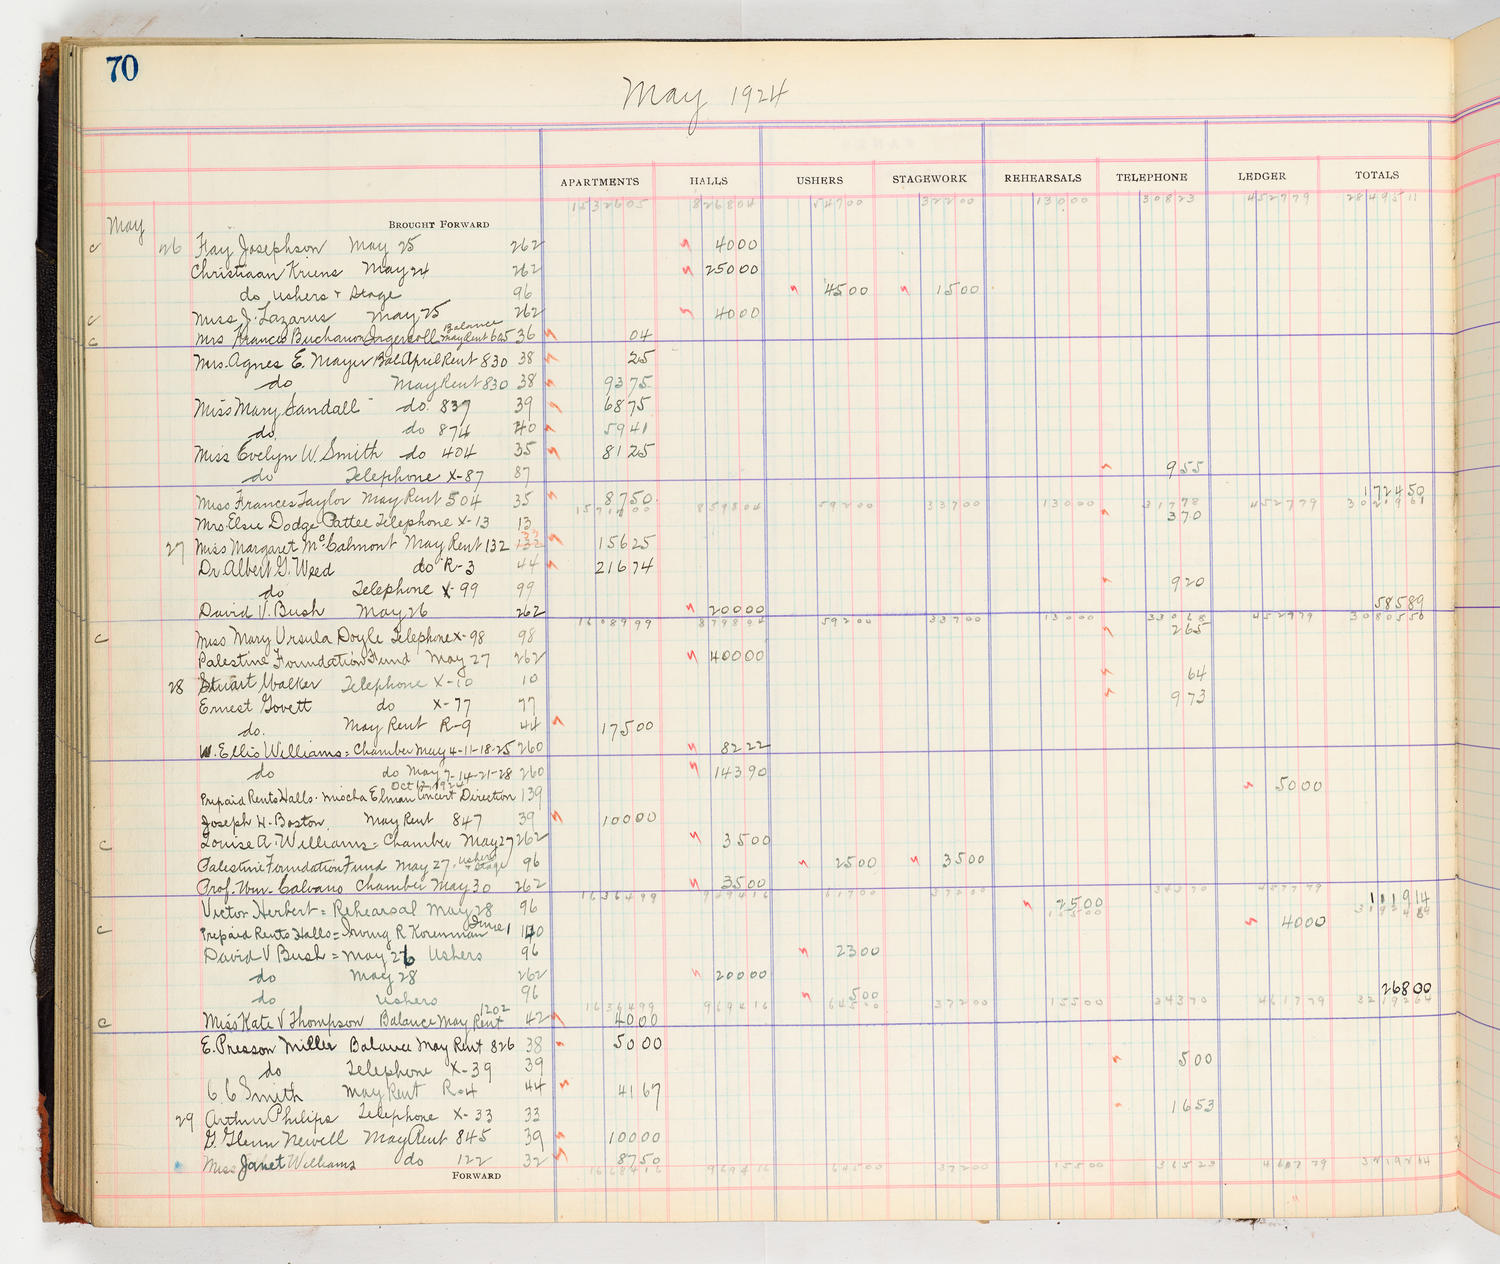 70
May 1924
APARTMENTS HALLS USHERS STAGEWORK REHEARSALS TELEPHONE LEDGER TOTALS
1532605 826804 54700 32200 13000 30823 452779 2849511
May BROUGHT FORWARD
c 26 Fay Josephson May 25 262 4000
Christiaan Kriens May 24 262 25000
do ushers + Stage 96 4500 1500
c Miss J. Lazarus May 25 262 4000
c Mrs Francis Buchanan Ingersoll Balance May Rent 605 36 04
Mrs. Agnes E. Mayer Bal April Rent 830 38 25
do May Rent 830 38 9375
Miss Mary Sandall do 837 39 6875
do do 874 40 5941
Miss Evelyn W. Smith do 404 35 8125
do Telephone X-87 87 955
172450
Miss Frances Taylor May Rent 504 35 8750
1571800 859804 59200 33700 13000 31778 452779 3021961
Mrs. Elsie Dodge Pattee Telephone X-13 13 370
27 Miss Margaret McCalmont May Rent 132 132 15625
Dr. Albert G. Weed do R-3 44 21674
do Telephone X-99 99 920
58589
David V. Bush May 26 262 20000
1608999 879804 59200 33700 13000 33068 452779 3080550
c Miss Mary Ursula Doyle Telephone X-98 98 265
Palestine Foundation Fund May 27 262 40000
28 Stuart Walker Telephone X-10 10 64
Ernest Govett do X-77 77 973
do. May Rent R-9 44 17500
W. Ellis Williams = Chamber May 4-11-18-25 260 8222
do do May 7-14-21-28 260 14390
Oct 12, 1924
Prepaid Rents Halls. Mischa Elman Concert Direction 139 5000
Joseph H. Boston. May Rent 847 39 10000
c Louise A. Williams = Chamber May 27 262 3500
Palestine Foundation Fund May 27. ushers + Stage 96 2500 3500
Prof. Wm. Calvano Chamber May 30 262 3500
1636499 949416 61700 37200 34370 457779 111914
Victor Herbert = Rehearsal May 28 96 2500
15500 3192464
c Prepaid Rents Halls = Irving R Korenman June 1 140 4000
David V Bush = May 26 Ushers 96 2300
do May 28 262 20000
do ushers 96 500
26800
1636499 969416 64500 37200 15500 34370 461779 3219264
c Miss Kate V Thompson Balance May Rent 1202 42 4000
E. Presson Miller Balance May Rent 826 38 5000
do Telephone X-39 39 500
C C Smith May Rent R-4 44 4167
29 Arthur Philips Telephone X-33 33 1653
G. Glenn Newell May Rent 845 39 10000
Miss Janet Williams do 122 32 8750
FORWARD 1668416 969416 64500 37200 15500 36523 461779 3219264